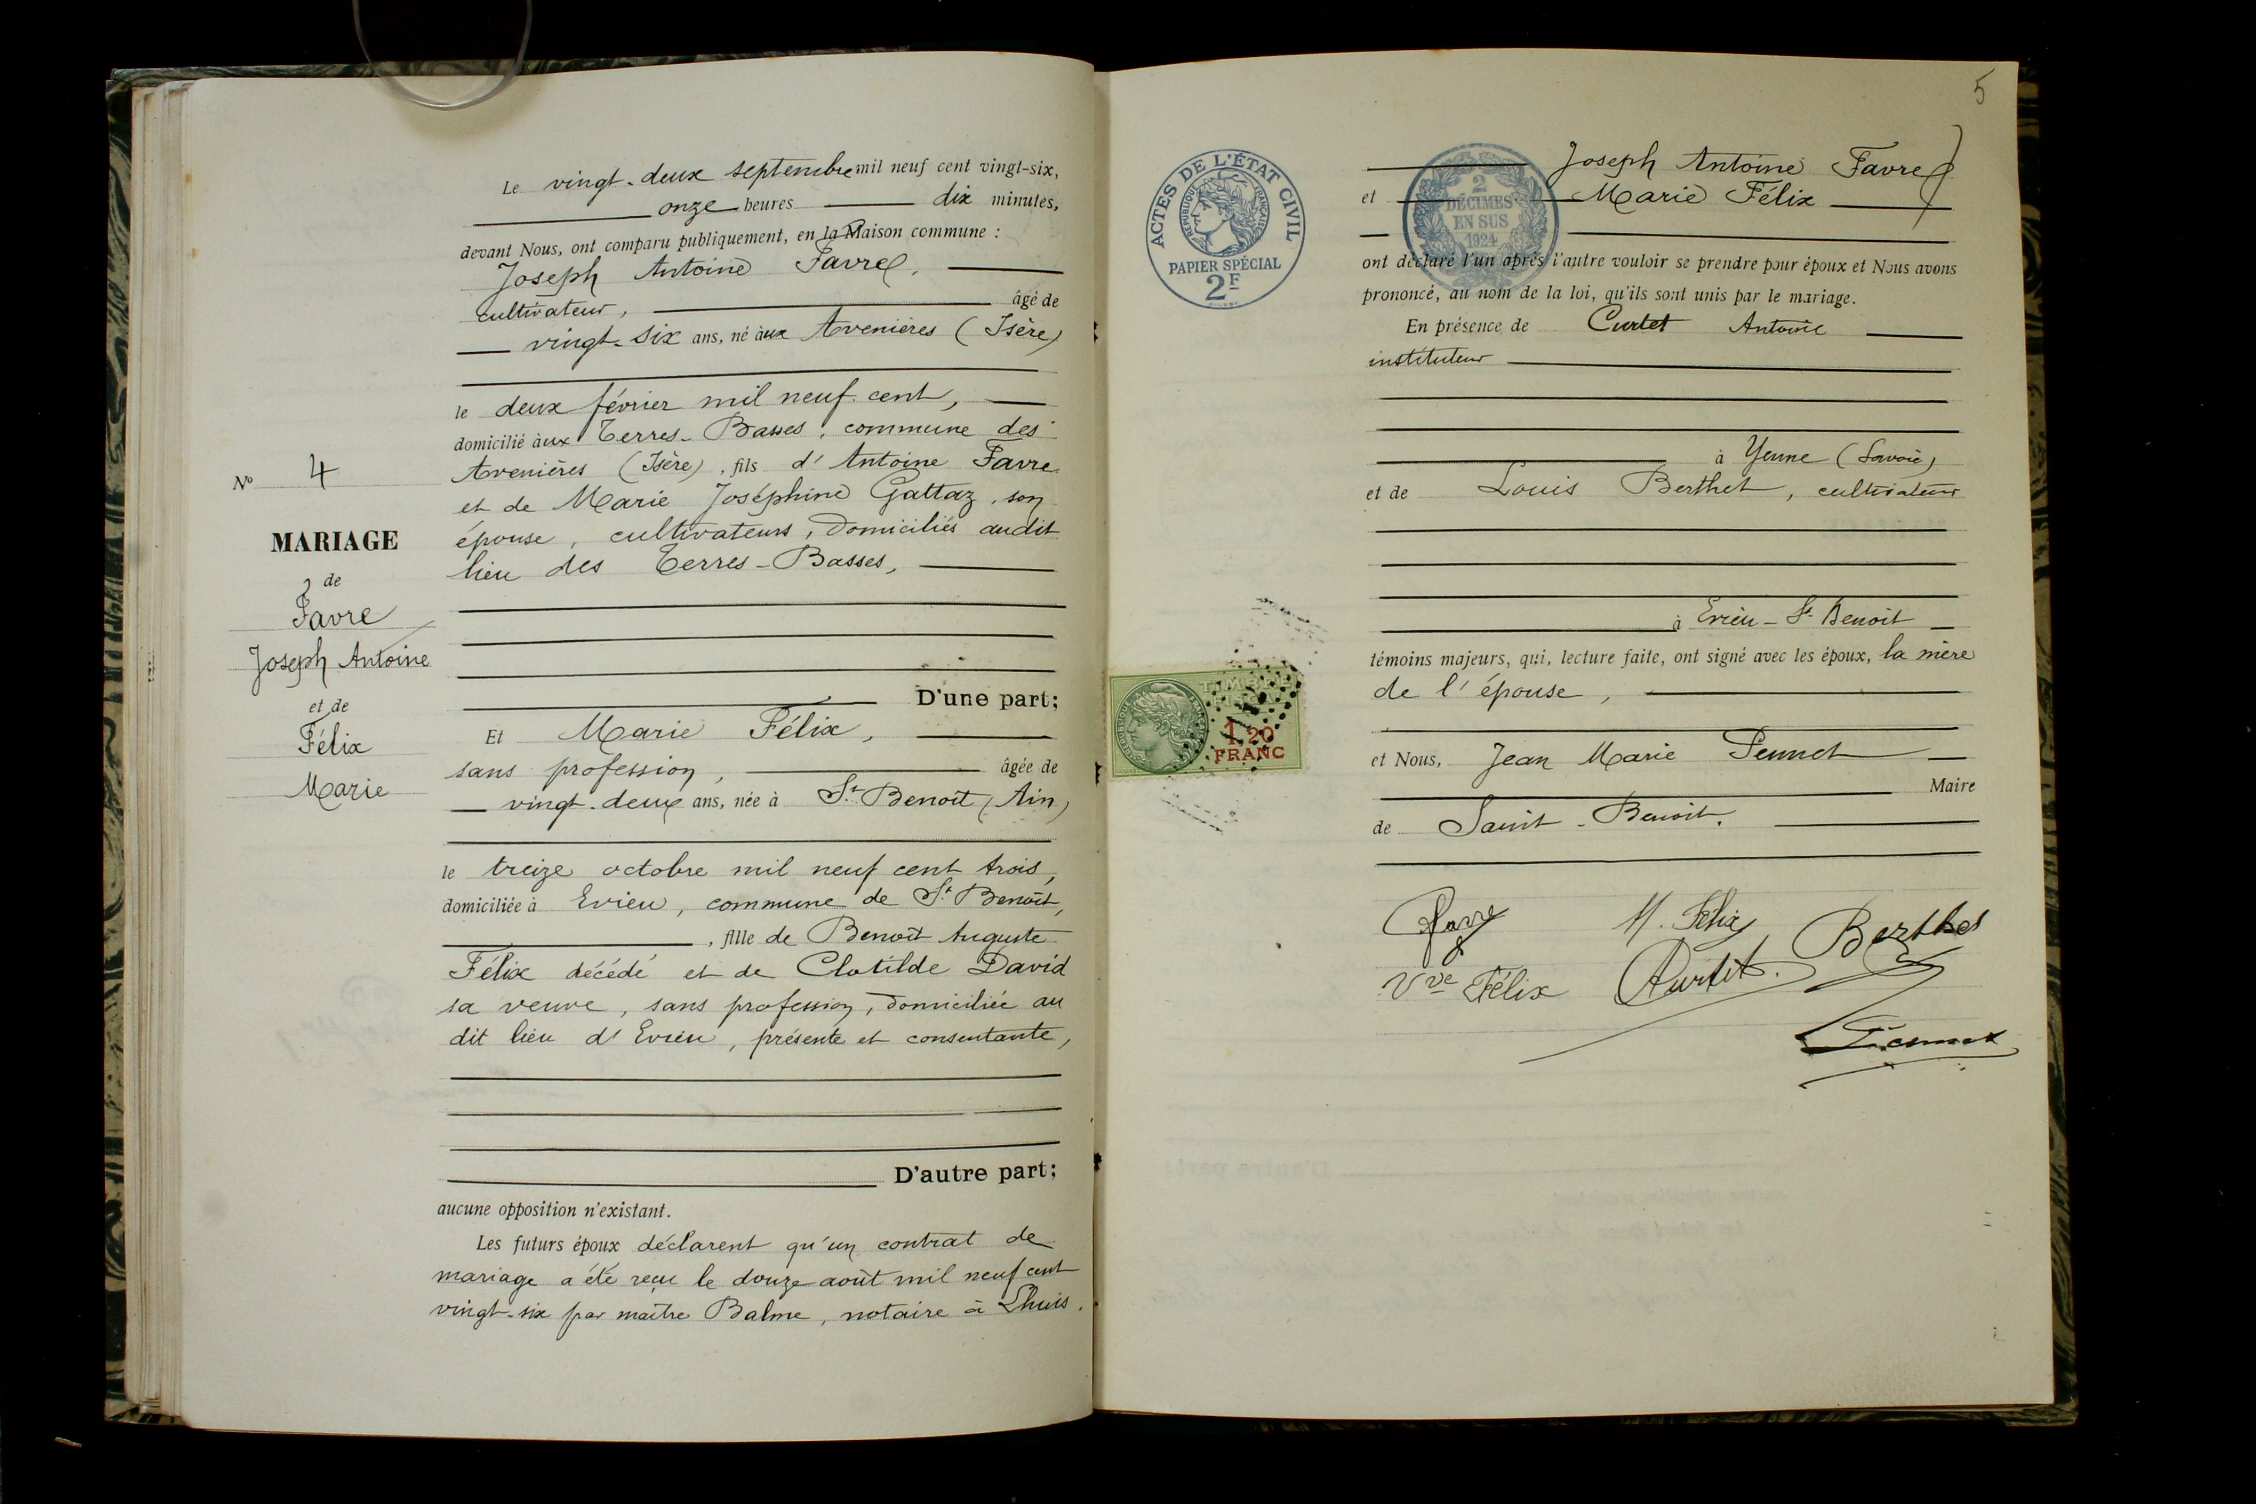 N° 4
MARIAGE
de
Favre
Joseph Antoine
et de
Félix
Marie
Le vingt-deux septembre mil neuf cent vingt-six,
onze heures dix minutes,
devant Nous, ont comparu publiquement, en la Maison commune :
Joseph Antoine Favre,
cultivateur, âgé de
vingt-six ans, né àux Avenières (Isère)
le deux février mil neuf cent,
domicilié àux Terres-Basses, commune des
Avenières (Isère), fils d'Antoine Favre
et de Marie Joséphine Gattaz, son
épouse, cultivateurs, domiciliés audit
lieu des Terres-Basses,
D'une part;
Et Marie Félix,
sans profession, âgée de
vingt-deux ans, née à St Benoît (Ain)
le treize octobre mil neuf cent trois,
domiciliée à Evieu, commune de St Benoît,
, fille de Benoît Auguste
Félix décédé et de Clotilde David
sa veuve, sans profession, domiciliée au
dit lieu d'Evieu, présente et consentante,
D'autre part;
aucune opposition n'existant.
Les futurs époux déclarent qu'un contrat de
mariage a été reçu le douze août mil neuf cent
vingt-six par maître Balme, notaire à Lhuis.
5
ACTES DE L'ÉTAT CIVIL
RÉPUBLIQUE FRANÇAISE
PAPIER SPÉCIAL
2F
2
DÉCIMES
EN SUS
1924
Joseph Antoine Favre
et Marie Félix
ont déclaré l'un après l'autre vouloir se prendre pour époux et Nous avons
prononcé, au nom de la loi, qu'ils sont unis par le mariage.
En présence de Curtet Antoine
instituteur
à Yenne (Savoie)
et de Louis Berthet, cultivateur
à Evieu-St Benoit
témoins majeurs, qui, lecture faite, ont signé avec les époux, la mère
de l'épouse,
et Nous, Jean Marie Pennet
Maire
de Saint-Benoit.
TIMBRE
1,20
FRANC
Favre
M. Félix
Berthet
Vve Félix
Curtet.
Pennet